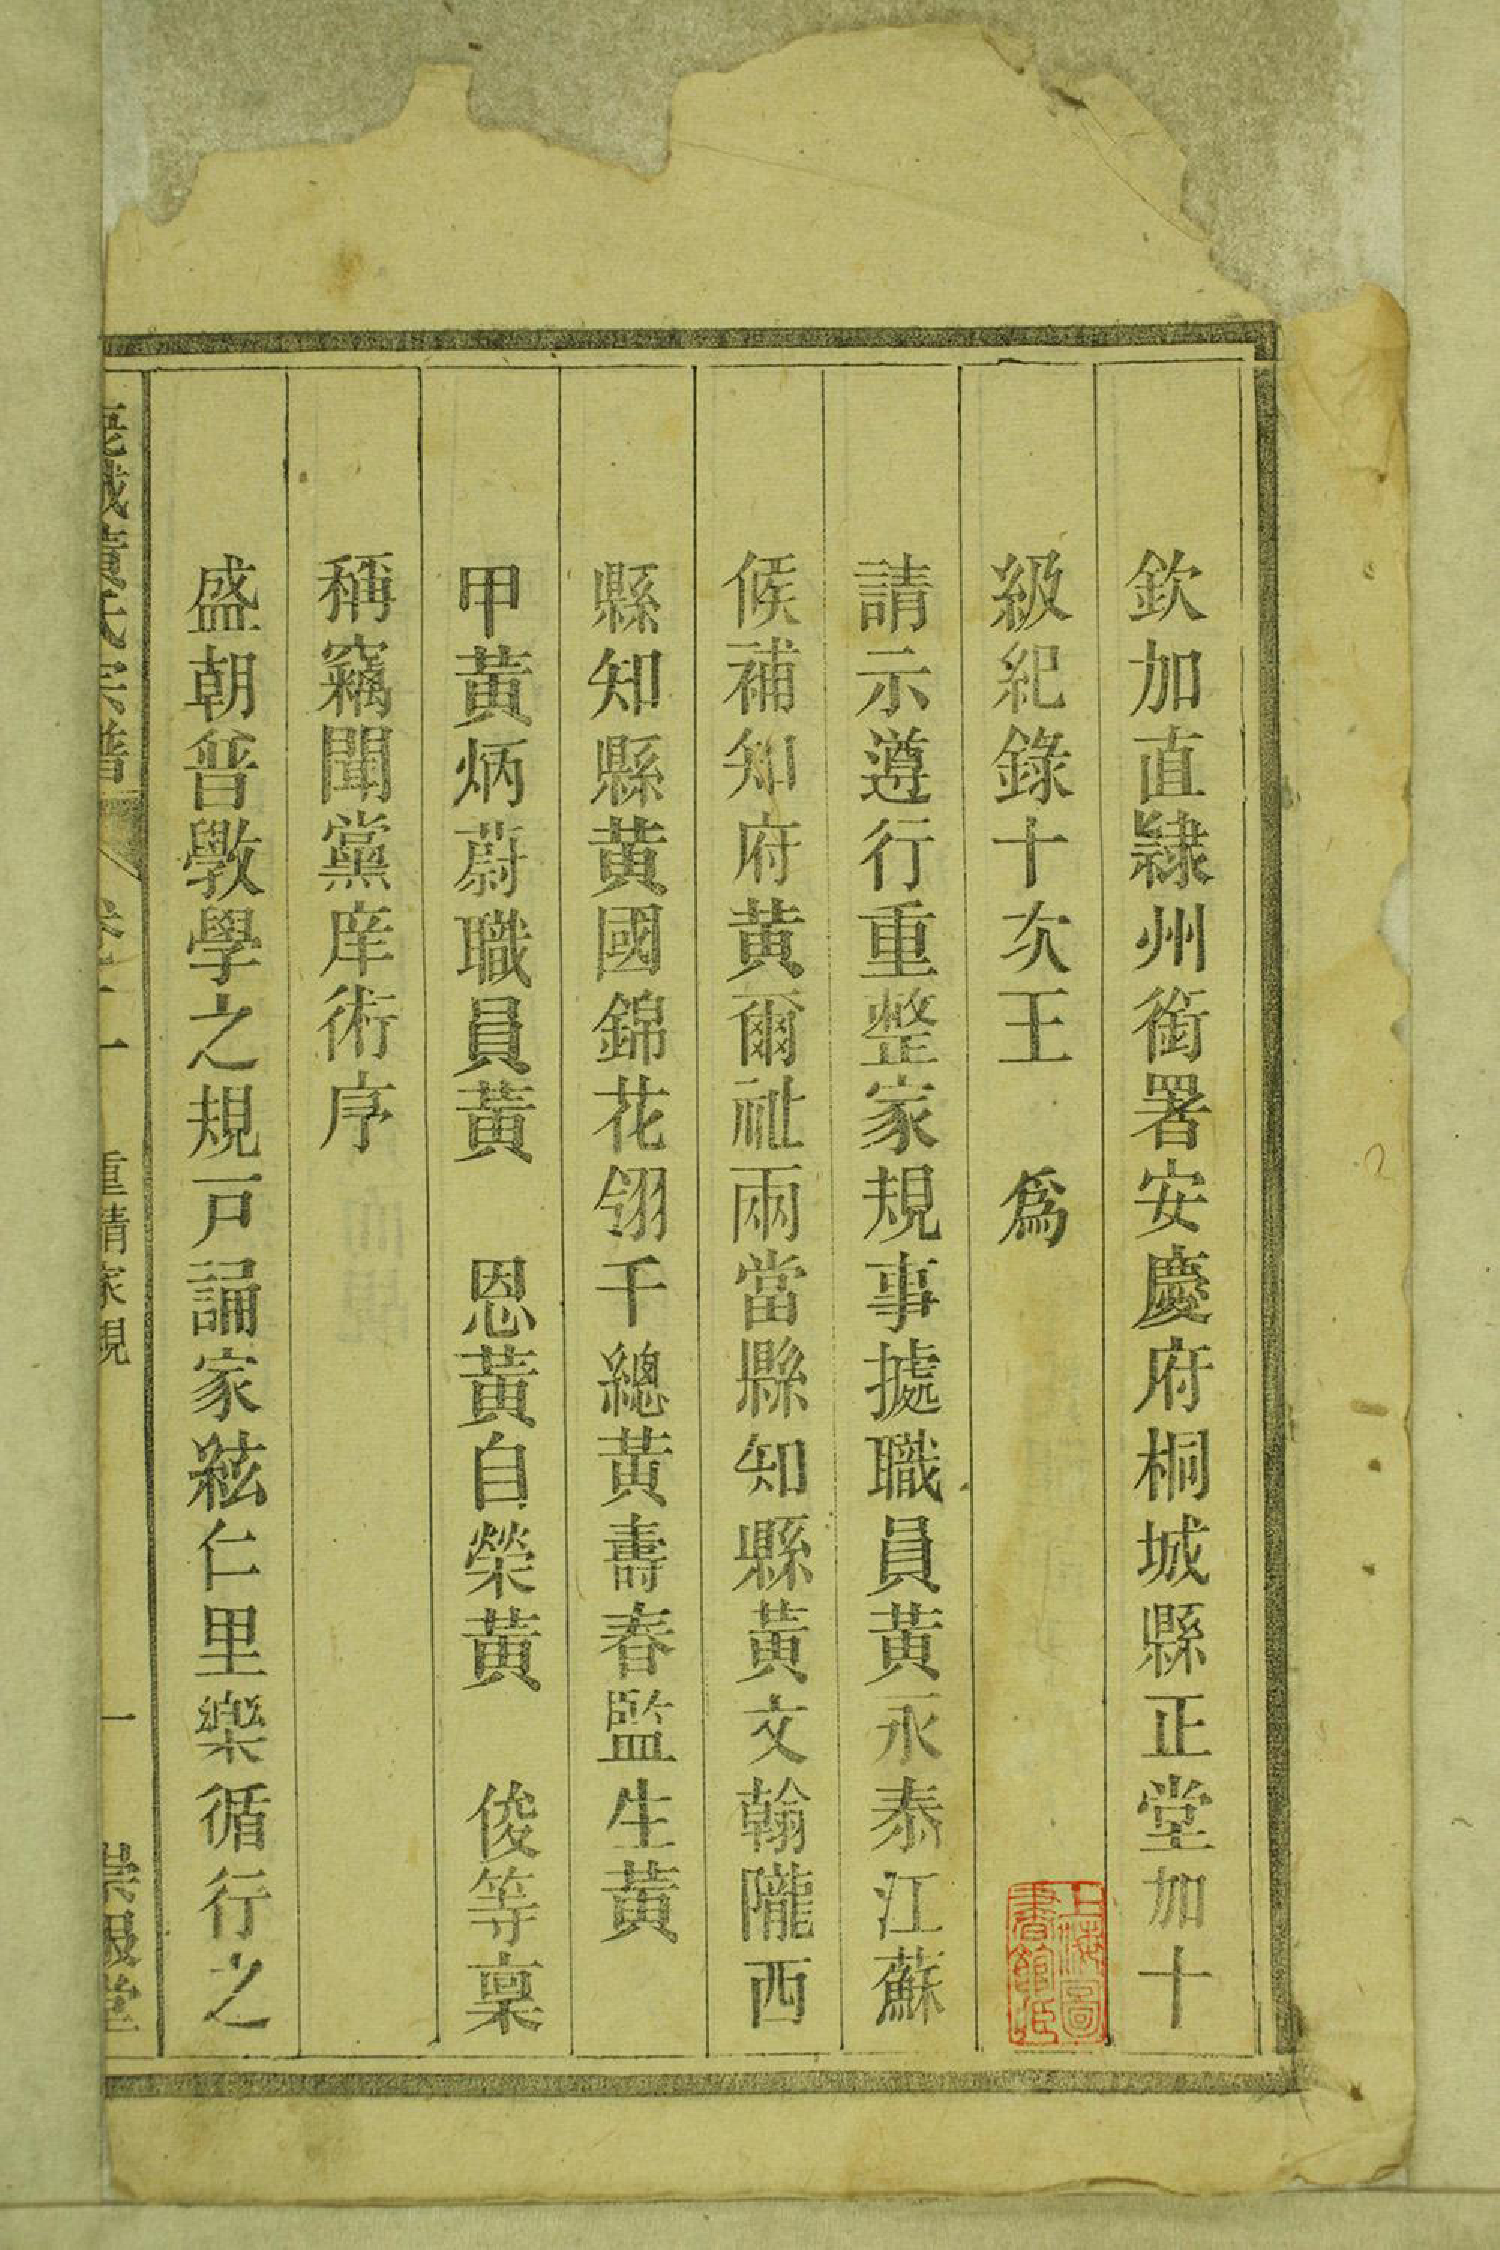 欽加直隷州銜署安慶府桐城縣正堂加十
級紀錄十次王　爲
請示遵行重整家規事據職員黃永泰江蘇
候補知府黃爾祉兩當縣知縣黃文翰隴西
縣知縣黃國錦花翎千總黃壽春監生黃
甲黃炳蔚職員黃　恩黃自榮黃　俊等稟
稱竊聞黨庠術序
盛朝普斆學之規戸誦家絃仁里樂循行之
黃氏宗譜
重精家規
一
崇報堂
上海圖
書館藏